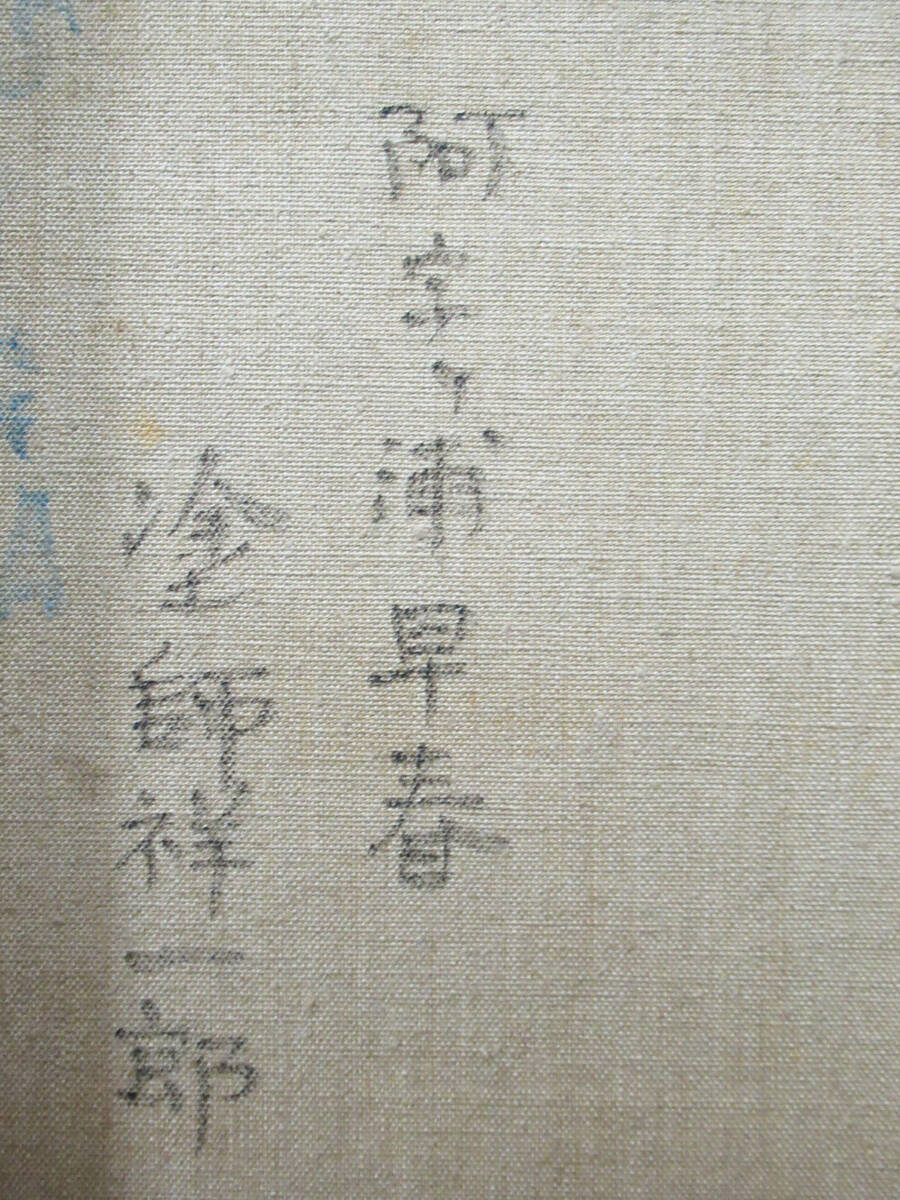 阿字ヶ浦早春
塗師祥一郎